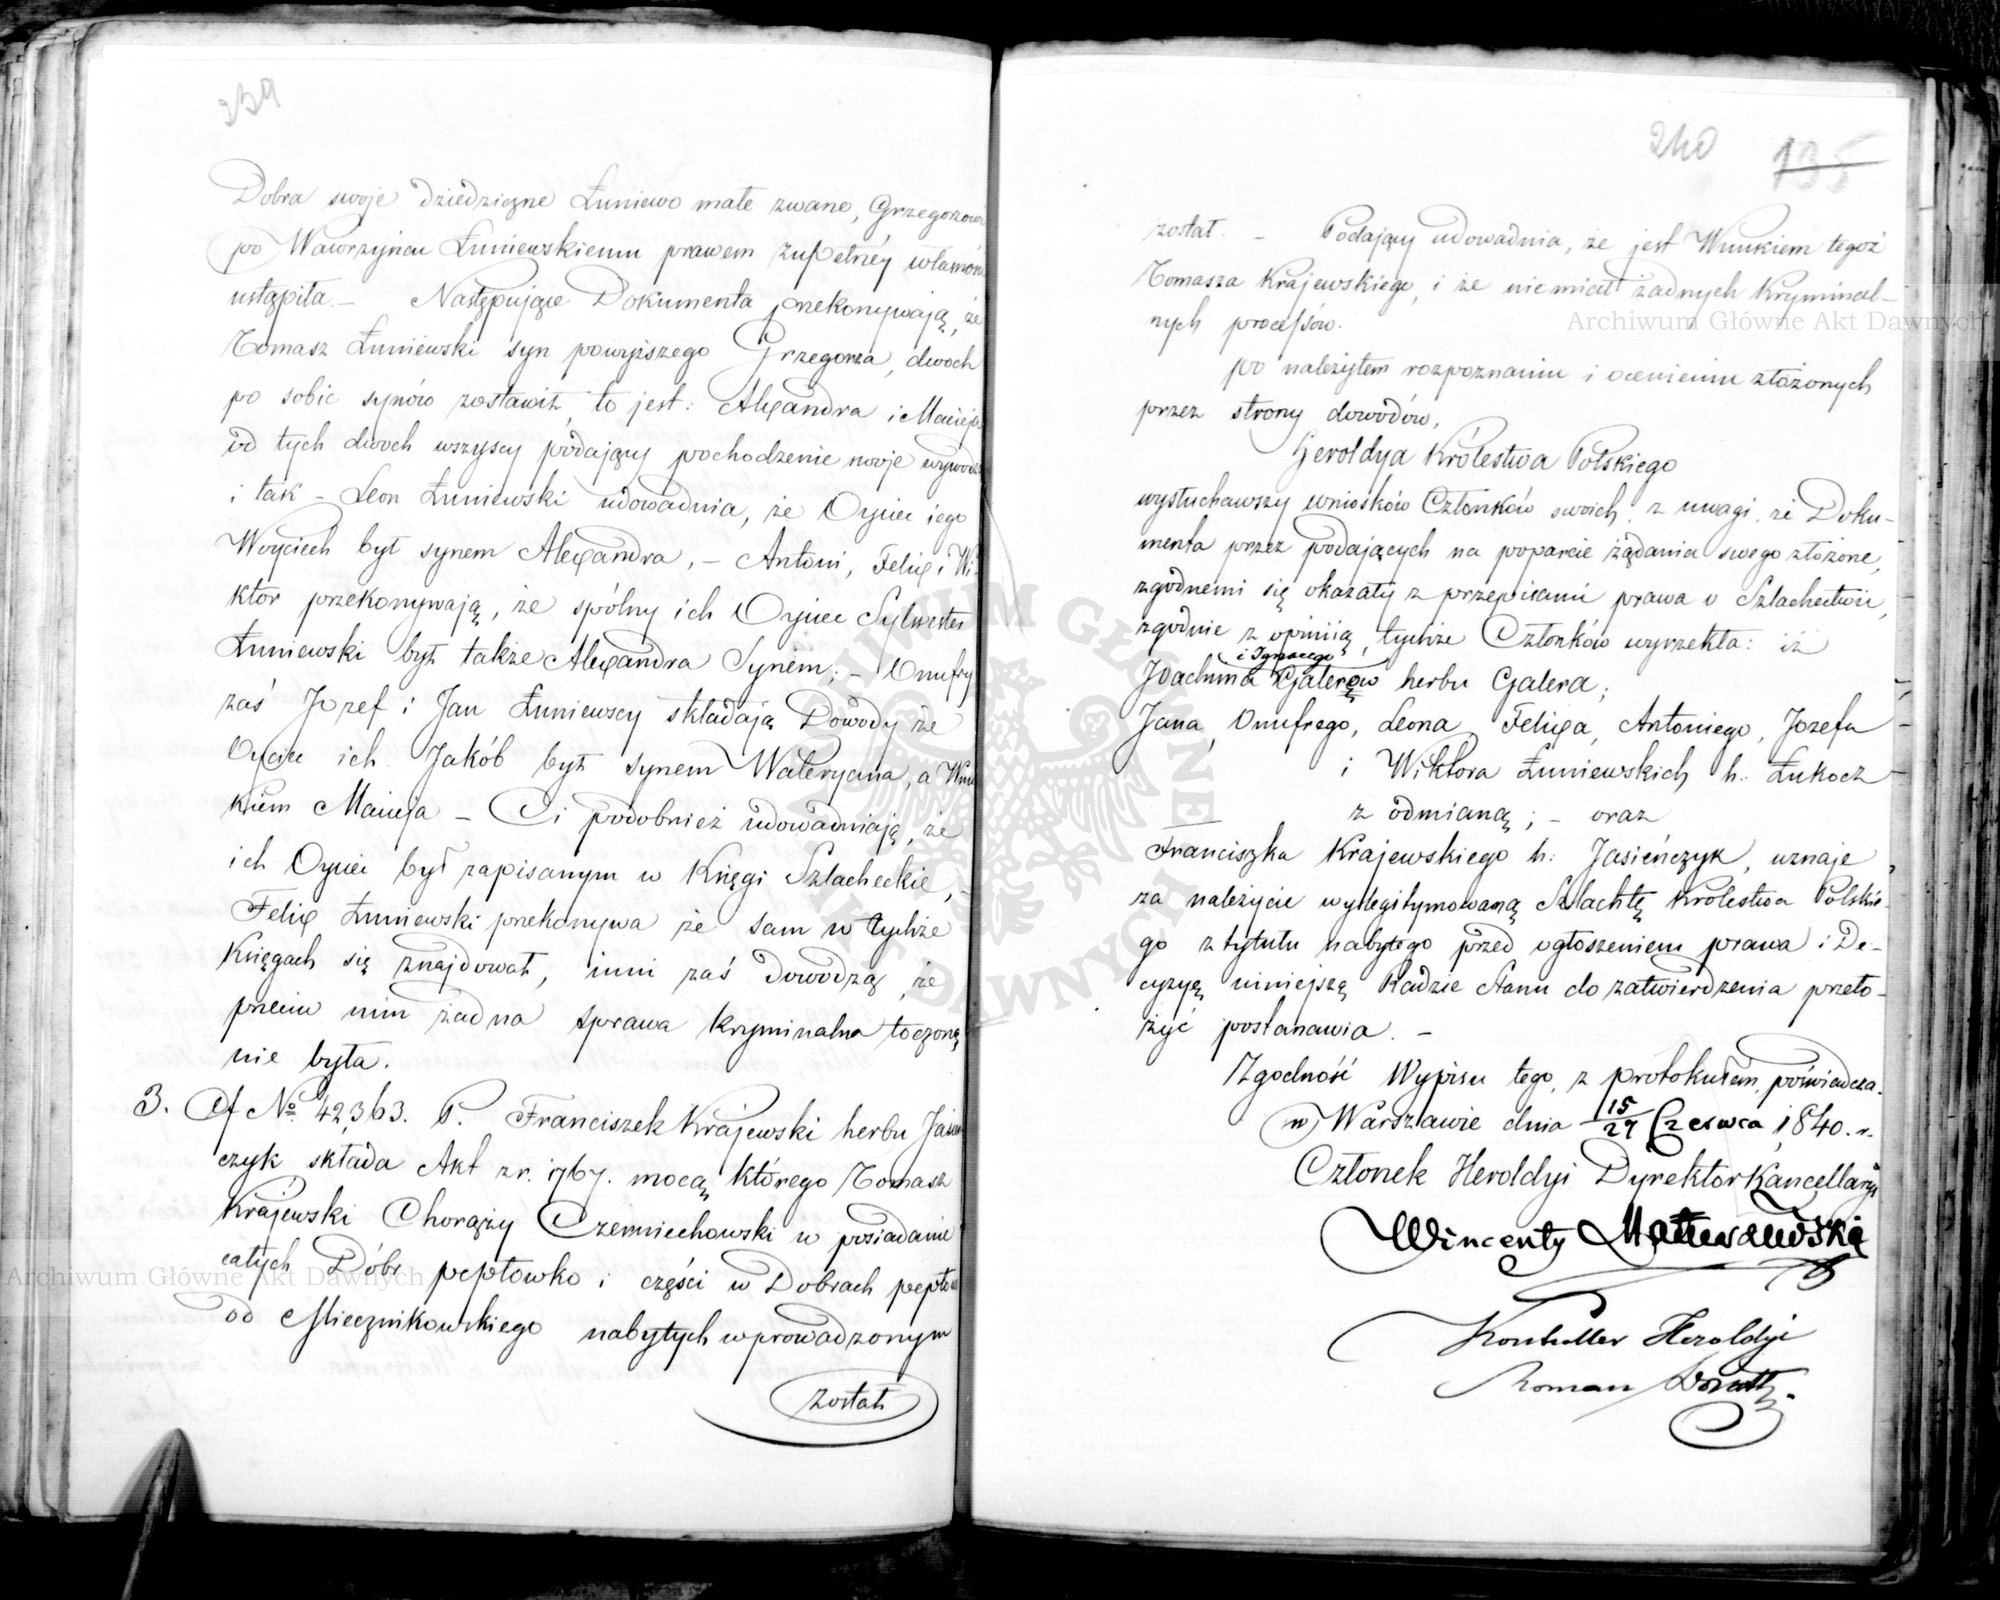 239
Dobra swoje dziedziczne Łuniewo małe zwane, Grzegorzowi
po Wawrzyńcu Łuniewskiemu prawem zupełnéy własnośc
ustąpiła. — Następujące Dokumenta przekonywają, że
Tomasz Łuniewski syn powyższego Grzegorza, dwoch
po sobie synów zostawił, to jest: Alexandra i Macieja
od tych dwoch wszyscy podający pochodzenie swoje wywodzą
i tak — Leon Łuniewski udowadnia, że Oyciec iego
Woyciech był synem Alexandra, — Antoni, Felix i Wi-
ktor przekonywają, że spólny ich Oyciec Sylwester
Łuniewski był także Alexandra Synem; — Onufry
zaś Jozef i Jan Łuniewscy składają Dowody że
Oyciec ich Jakób był synem Waleryana, a Wnu
kiem Macieja — Ci podobnież udowadniają, że
ich Oyciec był zapisanym w Księgi Szlacheckie, —
Felix Łuniewski przekonywa że sam w tychże
Księgach się znajdował, inni zaś dowodzą, że
przeciw nim żadna sprawa kryminalna toczoną
nie była.
3. Af No 42,363. P. Franciszek Krajewski herbu Jasień
czyk składa Akt z r. 1767. mocą którego Tomasz
Krajewski Chorąży Czerniechowski w posiadanie
całych Dóbr pepłowko i części w Dobrach pepłow
od Miecznikowskiego nabytych wprowadzonym
został
240 135
został. — Podający udowadnia, że jest Wnukiem tegoż
Tomasza Krajewskiego, i że niemiał żadnych Kryminal-
nych processów.
po należytem rozpoznaniu i ocenieniu złożonych
przez strony dowodów,
Heroldya Królestwa Polskiego
wysłuchawszy wniosków Członków swoich, z uwagi, że Doku-
menta przez podających na poparcie żądania swego złożone,
zgodnemi się okazały z przepisami prawa o Szlachectwie,
zgodnie z opiniią, tychże Członków wyrzekła: iż
i Ignacego
Joachima Galerów herbu Galera;
Jana, Onufrego, Leona, Felixa, Antoniego, Jozefa
i Wiktora Łuniewskich h: Łukocz
z odmianą; — oraz
Franciszka Krajewskiego h: Jasieńczyk, uznaje,
za należycie wylegitymowaną Szlachtę Królestwa Polskie-
go z tytułu nabytego przed ogłoszeniem prawa i De-
cyzyę niniejszą Radzie Stanu do zatwierdzenia przeło-
żyć postanawia. —
Zgodność Wypisu tego, z protokułem, poświadcza.
w Warszawie dnia 15/27 Czerwca 1840. r.
Członek Heroldyi Dyrektor Kancellaryi
Wincenty Matuszewski
Kontroller Heroldyi
Roman
Archiwum Główne Akt Dawnych
Archiwum Główne Akt Dawnych
ARCHIWUM GŁÓWNE AKT DAWNYCH